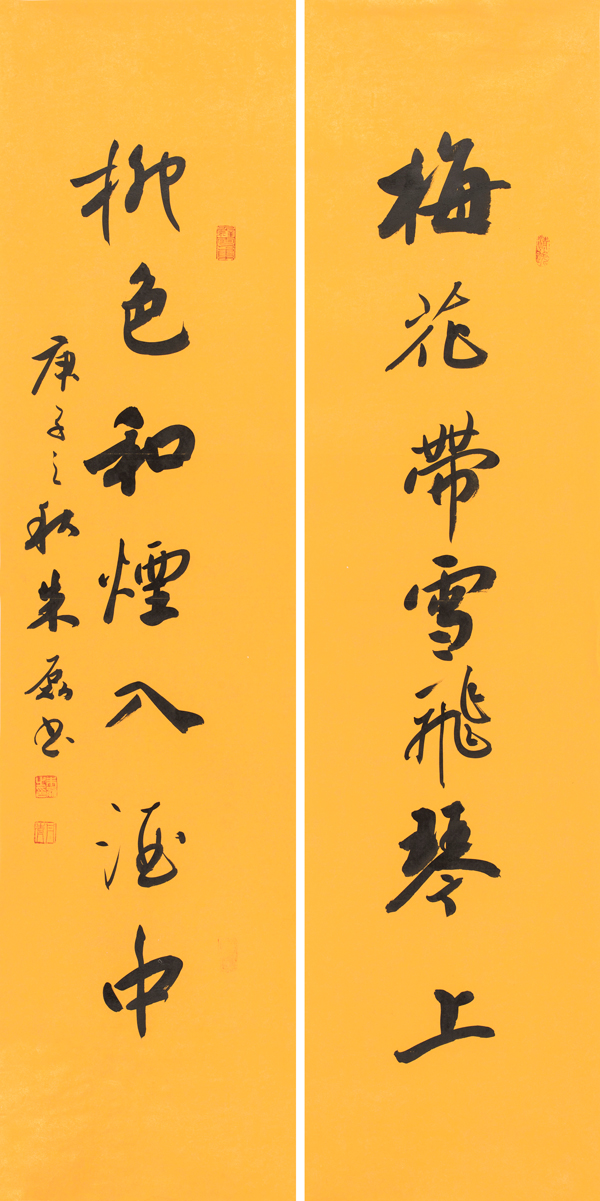 梅花帶雪飛琴上
柳色和煙入酒中
庚子之秋朱磊书